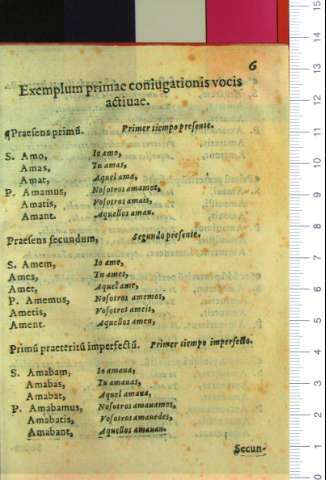 6
Exemplum primae coniugationis vocis
actiuae.
¶Praesens primũ. Primer tiempo presente.
S. Amo, Io amo,
Amas, Tu amas,
Amat, Aquel ama,
P. Amamus, Nosotros amamos,
Amatis, Vosotros amais,
Amant. Aquellos aman.
Praesens secundum, Segundo presente.
S. Amem, Io ame,
Ames, Tu ames,
Amet, Aquel ame,
P. Amemus, Nosotros amemos,
Ametis, Vosotros ameis,
Ament. Aquellos amen,
Primũ praeteritũ imperfectũ. Primer tiempo imperfecto.
S. Amabam, Io amaua,
Amabas, Tu amauas,
Amabat, Aquel amaua,
P. Amabamus, Nosotros amauamos,
Amabatis, Vosotros amauades,
Amabant, Aquellos amauan.
Secun-
15
14
13
12
11
10
9
8
7
6
5
4
3
2
1
0